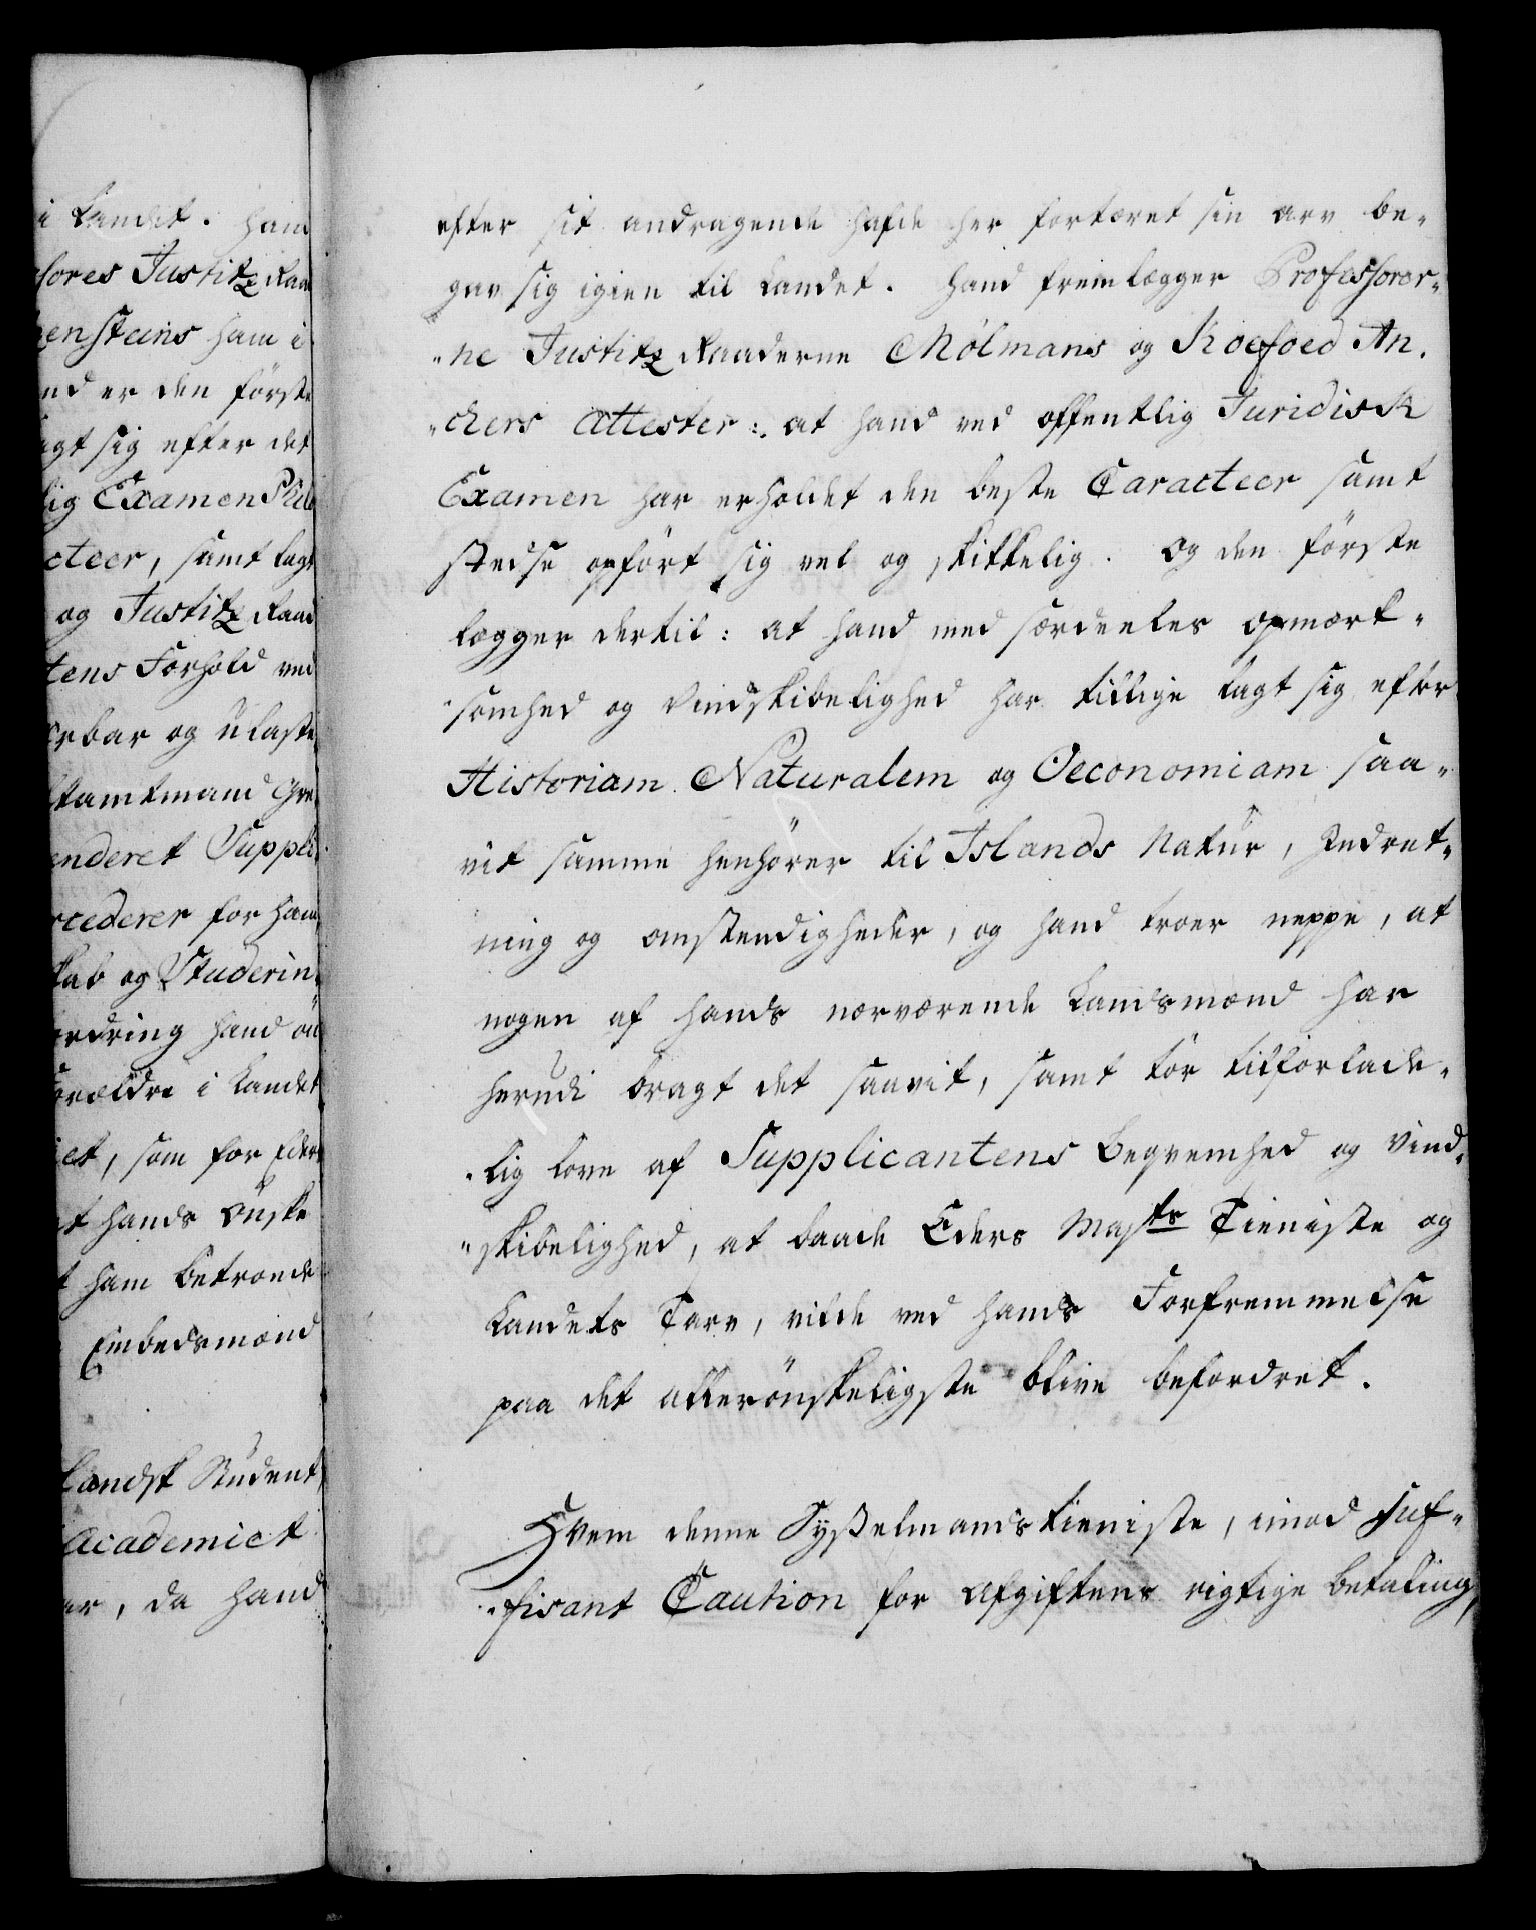 i Landet. Hand
sores Justitz Raa
ensteins ham i
nd er den förste
agt sig efter det
lig Examen
cteer, samt lagt
og Justitz Raad
tens Forhold ved
rbar og ulaste
tamtmand Gre
enderet Suppli
rcederer for ham,
kab og Studerin
ordring hand
orældre i Landet
et, som for Eders
t hands Önske
t ham betroende
Embedsmænd
landsk Student,
Academiet
ar, da hand
efter sit andragende hafde her fortæret sin arv be-
gav sig igien til Landet. Hand fremlægger Professorer-
"ne Justitz Raaderne Mólmans og Koefoed An.
"chers Attester: at hand ved offentlig Juridisk
Examen har erholdet den beste Caracteer samt
stedse opfört sig vel og skikkelig. Og den förste
lægger dertil: at hand med særdeeles opmærk-
"somhed og Vindskibelighed har tillige lagt sig efter
Historiam Naturalem og Oeconomiam saa-
vit samme henhörer til Islands Natur, Indret-
ning og omstendigheder, og hand troer neppe, at
nogen af hands nærværende Landsmænd har
herudi bragt det saavit, samt tör tilforlade-
"lig love af Supplicantens Beqvemhed og Vind-
"skibelighed, at baade Eders Majts Tieniste og
Landets Tarv, vilde ved hands Forfremmelse
paa det allerönskeligste blive befordret.
Hvem denne Sysselmands tieniste, imod suf-
"fisant Caution for Afgiftens rigtige betaling,